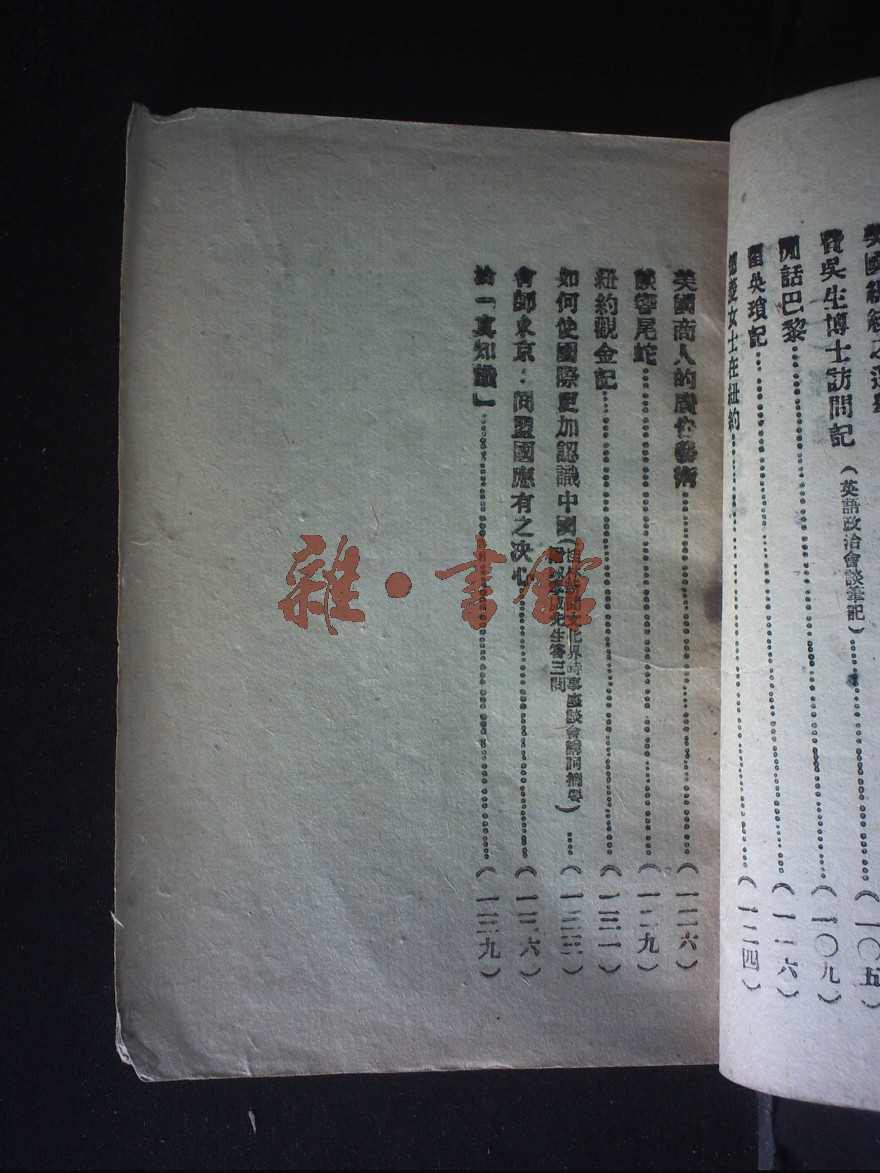 費吳生博士訪問記(英語政治會談筆記)……(一〇九)
閒話巴黎……(一一六)
女士在紐約……(一二四)
美國商人的廣告藝術……(一二六)
談響尾蛇……(一二九)
紐約觀金記……(一三一)
如何使國際更加認識中國(文化界時事座談會講詞摘要 先生答三問)……(一三三)
會師東京:同盟國應有之決心……(一三六)
「真知識」……(一三九)
雜·書館